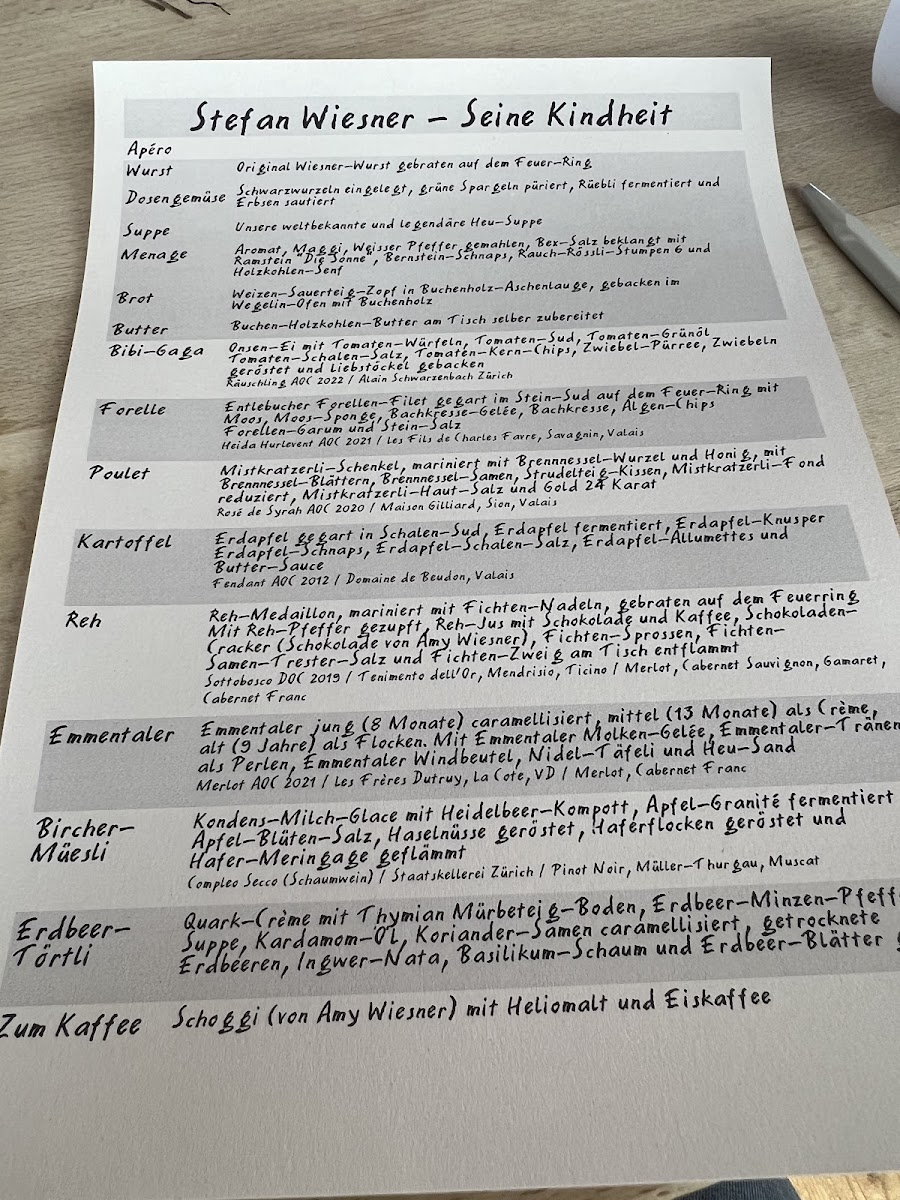 Stefan Wiesner – Seine Kindheit
Apéro
Wurst Original Wiesner-Wurst gebraten auf dem Feuer-Ring
Dosengemüse Schwarzwurzeln eingelegt, grüne Spargeln püriert, Rüebli fermentiert und
Erbsen sautiert
Suppe Unsere weltbekannte und legendäre Heu-Suppe
Menage Aromat, Maggi, Weisser Pfeffer gemahlen, Bex-Salz beklangt mit
Ramstein "Die Sonne", Bernstein-Schnaps, Rauch-Rössli-Stumpen 6 und
Holzkohlen-Senf
Brot Weizen-Sauerteig-Zopf in Buchenholz-Aschenlauge, gebacken im
Wegelin-Ofen mit Buchenholz
Butter Buchen-Holzkohlen-Butter am Tisch selber zubereitet
Bibi-Gaga Onsen-Ei mit Tomaten-Würfeln, Tomaten-Sud, Tomaten-Grünöl
Tomaten-Schalen-Salz, Tomaten-Kern-Chips, Zwiebel-Pürree, Zwiebeln
geröstet und liebstöckel gebacken
Räuschling AOC 2022 / Alain Schwarzenbach Zürich
Forelle Entlebucher Forellen-Filet gegart im Stein-Sud auf dem Feuer-Ring mit
Moos, Moos-Sponge, Bachkresse-Gelée, Bachkresse, Algen-Chips
Forellen-Garum und Stein-Salz
Heida Hurlevent AOC 2021 / Les Fils de Charles Favre, Savagnin, Valais
Poulet Mistkratzerli-Schenkel, mariniert mit Brennnessel-Wurzel und Honig, mit
Brennnessel-Blättern, Brennnessel-Samen, Strudelteig-Kissen, Mistkratzerli-Fond
reduziert, Mistkratzerli-Haut-Salz und Gold 24 Karat
Rosé de Syrah AOC 2020 / Maison Gilliard, Sion, Valais
Kartoffel Erdapfel gegart in Schalen-Sud, Erdapfel fermentiert, Erdapfel-Knusper
Erdapfel-Schnaps, Erdapfel-Schalen-Salz, Erdapfel-Allumettes und
Butter-Sauce
Fendant AOC 2012 / Domaine de Beudon, Valais
Reh Reh-Medaillon, mariniert mit Fichten-Nadeln, gebraten auf dem Feuerring
Mit Reh-Pfeffer gezupft, Reh-Jus mit Schokolade und Kaffee, Schokoladen-
Cracker (Schokolade von Amy Wiesner), Fichten-Sprossen, Fichten-
Samen-Trester-Salz und Fichten-Zweig am Tisch entflammt
Sottobosco DOC 2019 / Tenimento dell'Or, Mendrisio, Ticino / Merlot, Cabernet Sauvignon, Gamaret,
Cabernet Franc
Emmentaler Emmentaler jung (8 Monate) caramellisiert, mittel (13 Monate) als Crème,
alt (9 Jahre) als Flocken. Mit Emmentaler Molken-Gelée, Emmentaler-Tränen
als Perlen, Emmentaler Windbeutel, Nidel-Täfeli und Heu-Sand
Merlot AOC 2021 / Les Frères Dutruy, La Cote, VD / Merlot, Cabernet Franc
Bircher-
Müesli Kondens-Milch-Glace mit Heidelbeer-Kompott, Apfel-Granité fermentiert
Apfel-Blüten-Salz, Haselnüsse geröstet, Haferflocken geröstet und
Hafer-Meringage geflämmt
Compleo Secco (Schaumwein) / Staatskellerei Zürich / Pinot Noir, Müller-Thurgau, Muscat
Erdbeer-
Törtli Quark-Crème mit Thymian Mürbeteig-Boden, Erdbeer-Minzen-Pfeff
Suppe, Kardamom-Öl, Koriander-Samen caramellisiert, getrocknete
Erdbeeren, Ingwer-Nata, Basilikum-Schaum und Erdbeer-Blätter
Zum Kaffee Schoggi (von Amy Wiesner) mit Heliomalt und Eiskaffee